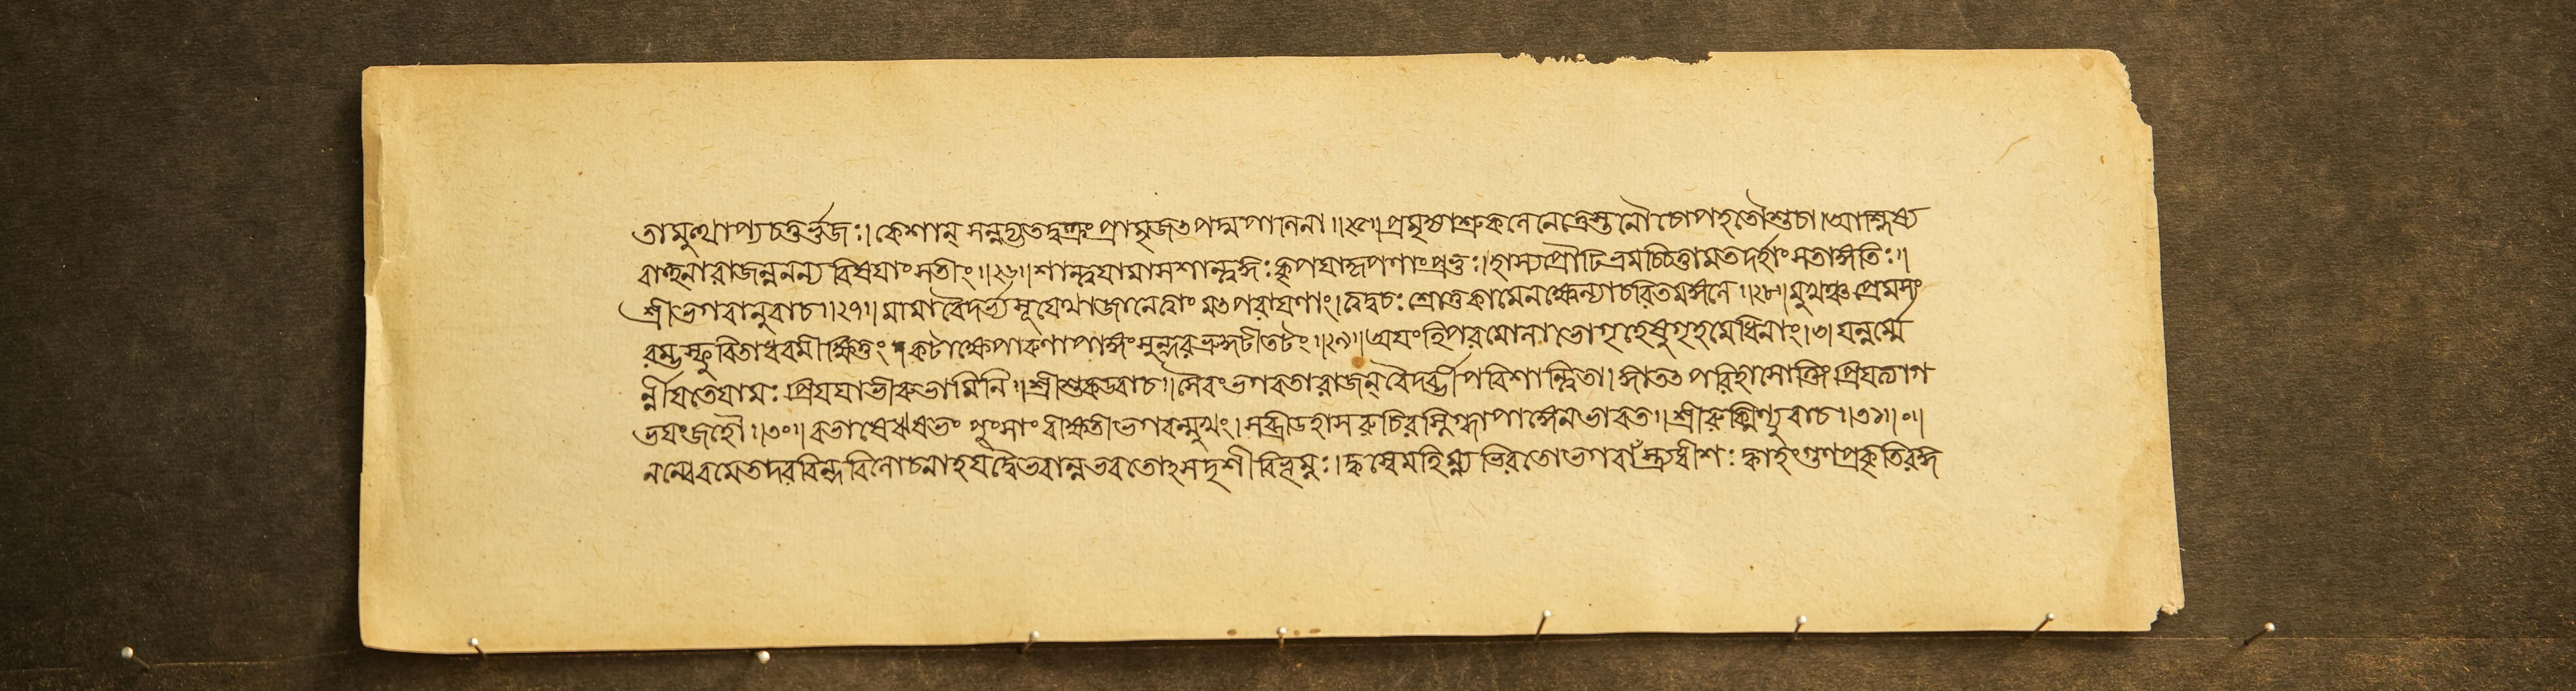 তামুত্থাপ্যচতুর্ভুজঃ।কেশান্ সমুহ্যতদ্বক্ত্রংপ্রামৃজৎপদ্মপানিনা॥২৫॥প্রমৃষ্যাশ্রুকলেনেত্রেস্তনৌচোপহতৌশুচা।আশ্লিষ্য
বাহুনারাজন্ননন্য বিষয়াংসতীং॥২৬॥শান্ত্বয়ামাসশান্ত্বজ্ঞঃকৃপয়াকৃপণাংপ্রভুঃ।হাস্যপ্রৌঢিভ্রমচ্চিত্তামতদর্হাংসতাঙ্গতিঃ॥
শ্রীভগবানুবাচ॥২৭॥মামাবৈদর্ভ্যসূয়েথাজানেত্বাং মৎপরায়ণাং।ত্বদ্বচঃশ্রোতুকামেনক্ষ্বেল্যাচরিতমঙ্গনে॥২৮॥মুখঞ্চপ্রেমসং
রম্ভস্ফুরিতাধরমীক্ষিতুং কটাক্ষেপারুণাপাঙ্গংসুন্দরভ্রুকুটীতটং॥২৯॥অয়ংহিপরমোলাভোগৃহেষুগৃহমেধিনাং।৩।যন্নর্ম্মৈ
র্নীয়তেযামঃপ্রিয়য়াভীরুভামিনি॥শ্রীশুকউবাচ॥সৈবংভগবতারাজন্ বৈদর্ভীপরিশান্ত্বিতা।জ্ঞাত্বাতৎ পরিহাসোক্তিং প্রিয়ত্যাগ
ভয়ংজহৌ॥৩০॥বভাষেঋষভং পুংসাং বীক্ষতীভগবন্মুখং।সব্রীডহাসরুচিরস্নিগ্ধাপাঙ্গেনভারত॥শ্রীরুক্মিণ্যুবাচ॥৩১॥০॥
নন্বেবমেতদরবিন্দবিলোচনাহযদ্বৈভবান্ভবতোঽসদৃশীবিভূম্নঃ।ক্বস্বেমহিম্ন্যভিরতোভগবাঁস্ত্র্যধীশঃক্বাহংগুণপ্রকৃতিরজ্ঞ